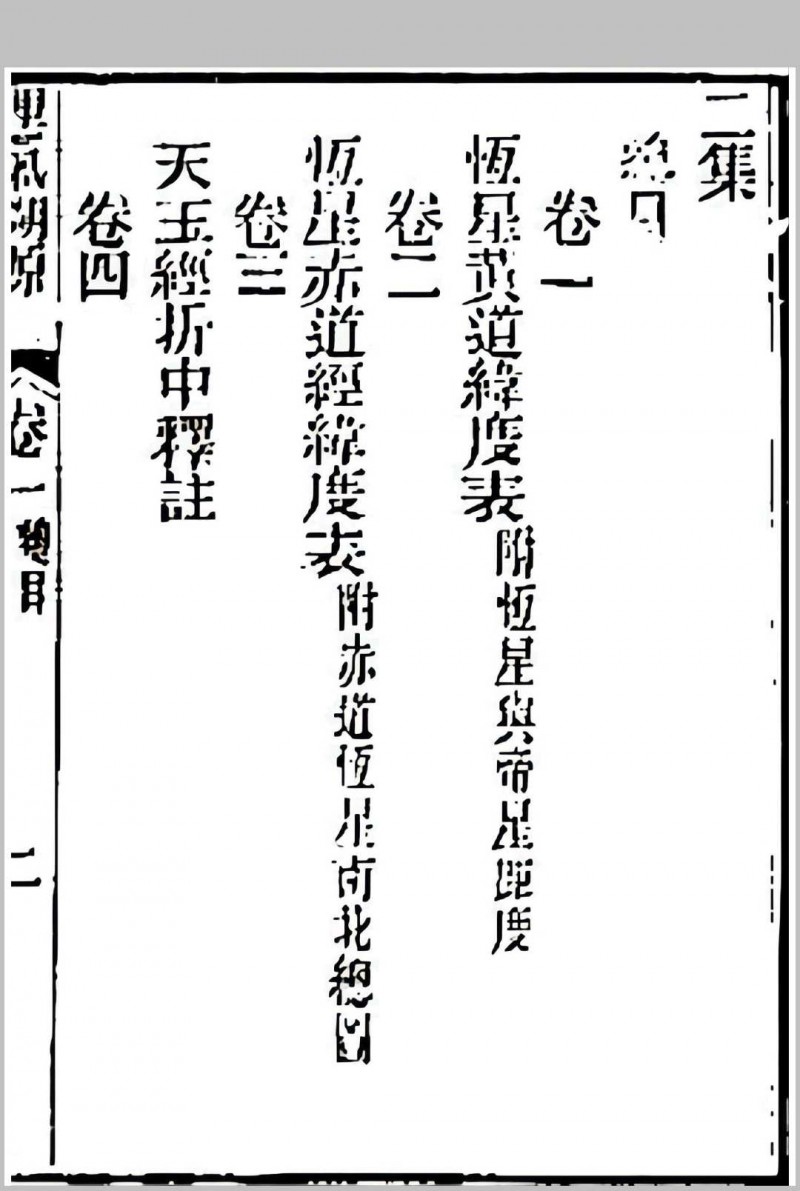 二集
總目
卷一
恆星黃道緯度表附恆星與帝星距度
卷二
恆星赤道經緯度表附赤道恆星南北總圖
卷三
天玉經折中釋註
卷四
理氣溯原
卷一總目
二